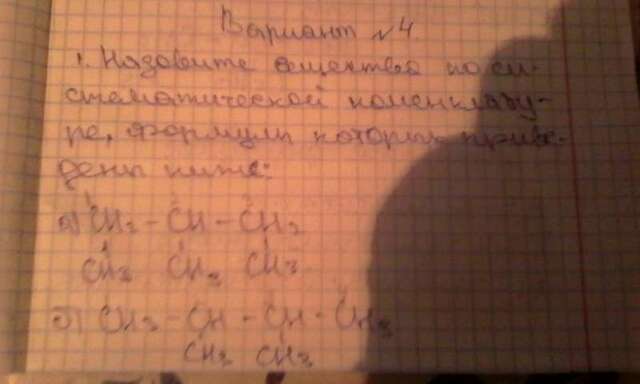 Вариант №4
1. Назовите вещества по си-
стематической номенклату-
ре, формулы которых приве-
дены ниже:
а) CH2 - CH - CH2
CH3 CH3 CH3
б) CH3 - CH - CH - CH3
CH3 CH3